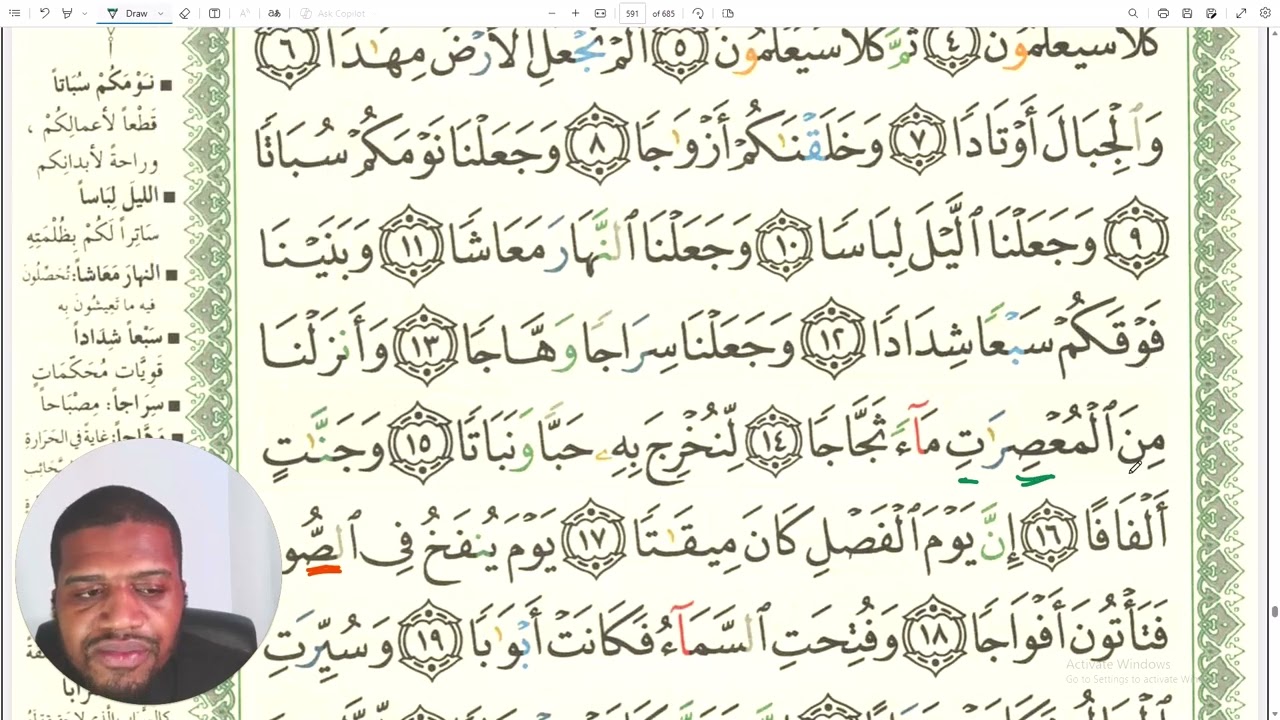 Draw
Ask Copilot
591 of 685
كَلَّا سَيَعْلَمُونَ ٤ ثُمَّ كَلَّا سَيَعْلَمُونَ ٥ أَلَمْ نَجْعَلِ ٱلْأَرْضَ مِهَٰدًا ٦
وَٱلْجِبَالَ أَوْتَادًا ٧ وَخَلَقْنَٰكُمْ أَزْوَٰجًا ٨ وَجَعَلْنَا نَوْمَكُمْ سُبَاتًا
٩ وَجَعَلْنَا ٱلَّيْلَ لِبَاسًا ١٠ وَجَعَلْنَا ٱلنَّهَارَ مَعَاشًا ١١ وَبَنَيْنَا
فَوْقَكُمْ سَبْعًا شِدَادًا ١٢ وَجَعَلْنَا سِرَاجًا وَهَّاجًا ١٣ وَأَنزَلْنَا
مِنَ ٱلْمُعْصِرَٰتِ مَآءً ثَجَّاجًا ١٤ لِّنُخْرِجَ بِهِۦ حَبًّا وَنَبَاتًا ١٥ وَجَنَّٰتٍ
أَلْفَافًا ١٦ إِنَّ يَوْمَ ٱلْفَصْلِ كَانَ مِيقَٰتًا ١٧ يَوْمَ يُنفَخُ فِى ٱلصُّو
فَتَأْتُونَ أَفْوَاجًا ١٨ وَفُتِحَتِ ٱلسَّمَآءُ فَكَانَتْ أَبْوَٰبًا ١٩ وَسُيِّرَتِ
نَوْمَكُمْ سُبَاتاً
قَطْعاً لأعمالِكُمْ ،
وراحةً لأبدانِكم
الليلَ لِبَاساً
سَاتِراً لَكُمْ بِظُلْمَتِهِ
النهارَ مَعَاشاً: تُحَصِّلُونَ
فيه ما تَعِيشُونَ بِه
سَبْعاً شِدَاداً
قَوِيَّاتٍ مُحْكَمَاتٍ
سِرَاجاً: مِصْبَاحاً
وَهَّاجاً: غايةً في الحَرارةِ
Activate Windows
Go to Settings to activate Wi